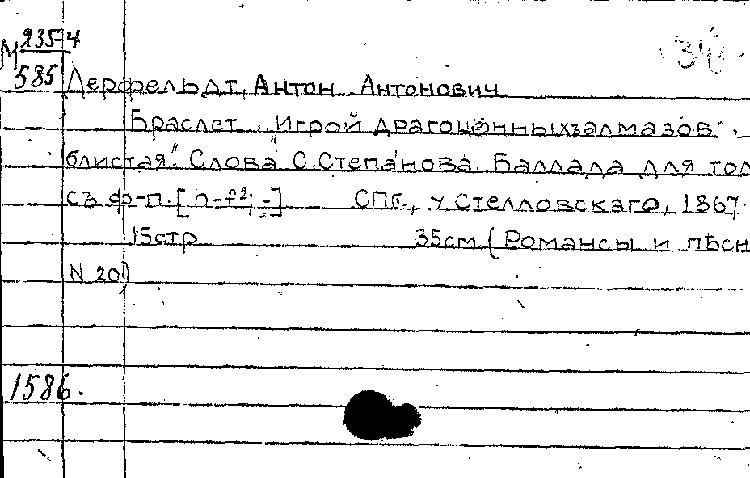 М 235-4
585 Дерфельдт, Антон Антонович
Браслет. "Игрой драгоценныхъ алмазов
блистая". Слова С. Степанова. Баллада для гол
съ ф-п. [ ] СПб., у Стелловскаго, 1867.
15 стр 35 см (Романсы и пѣсн
N 20)
1586.